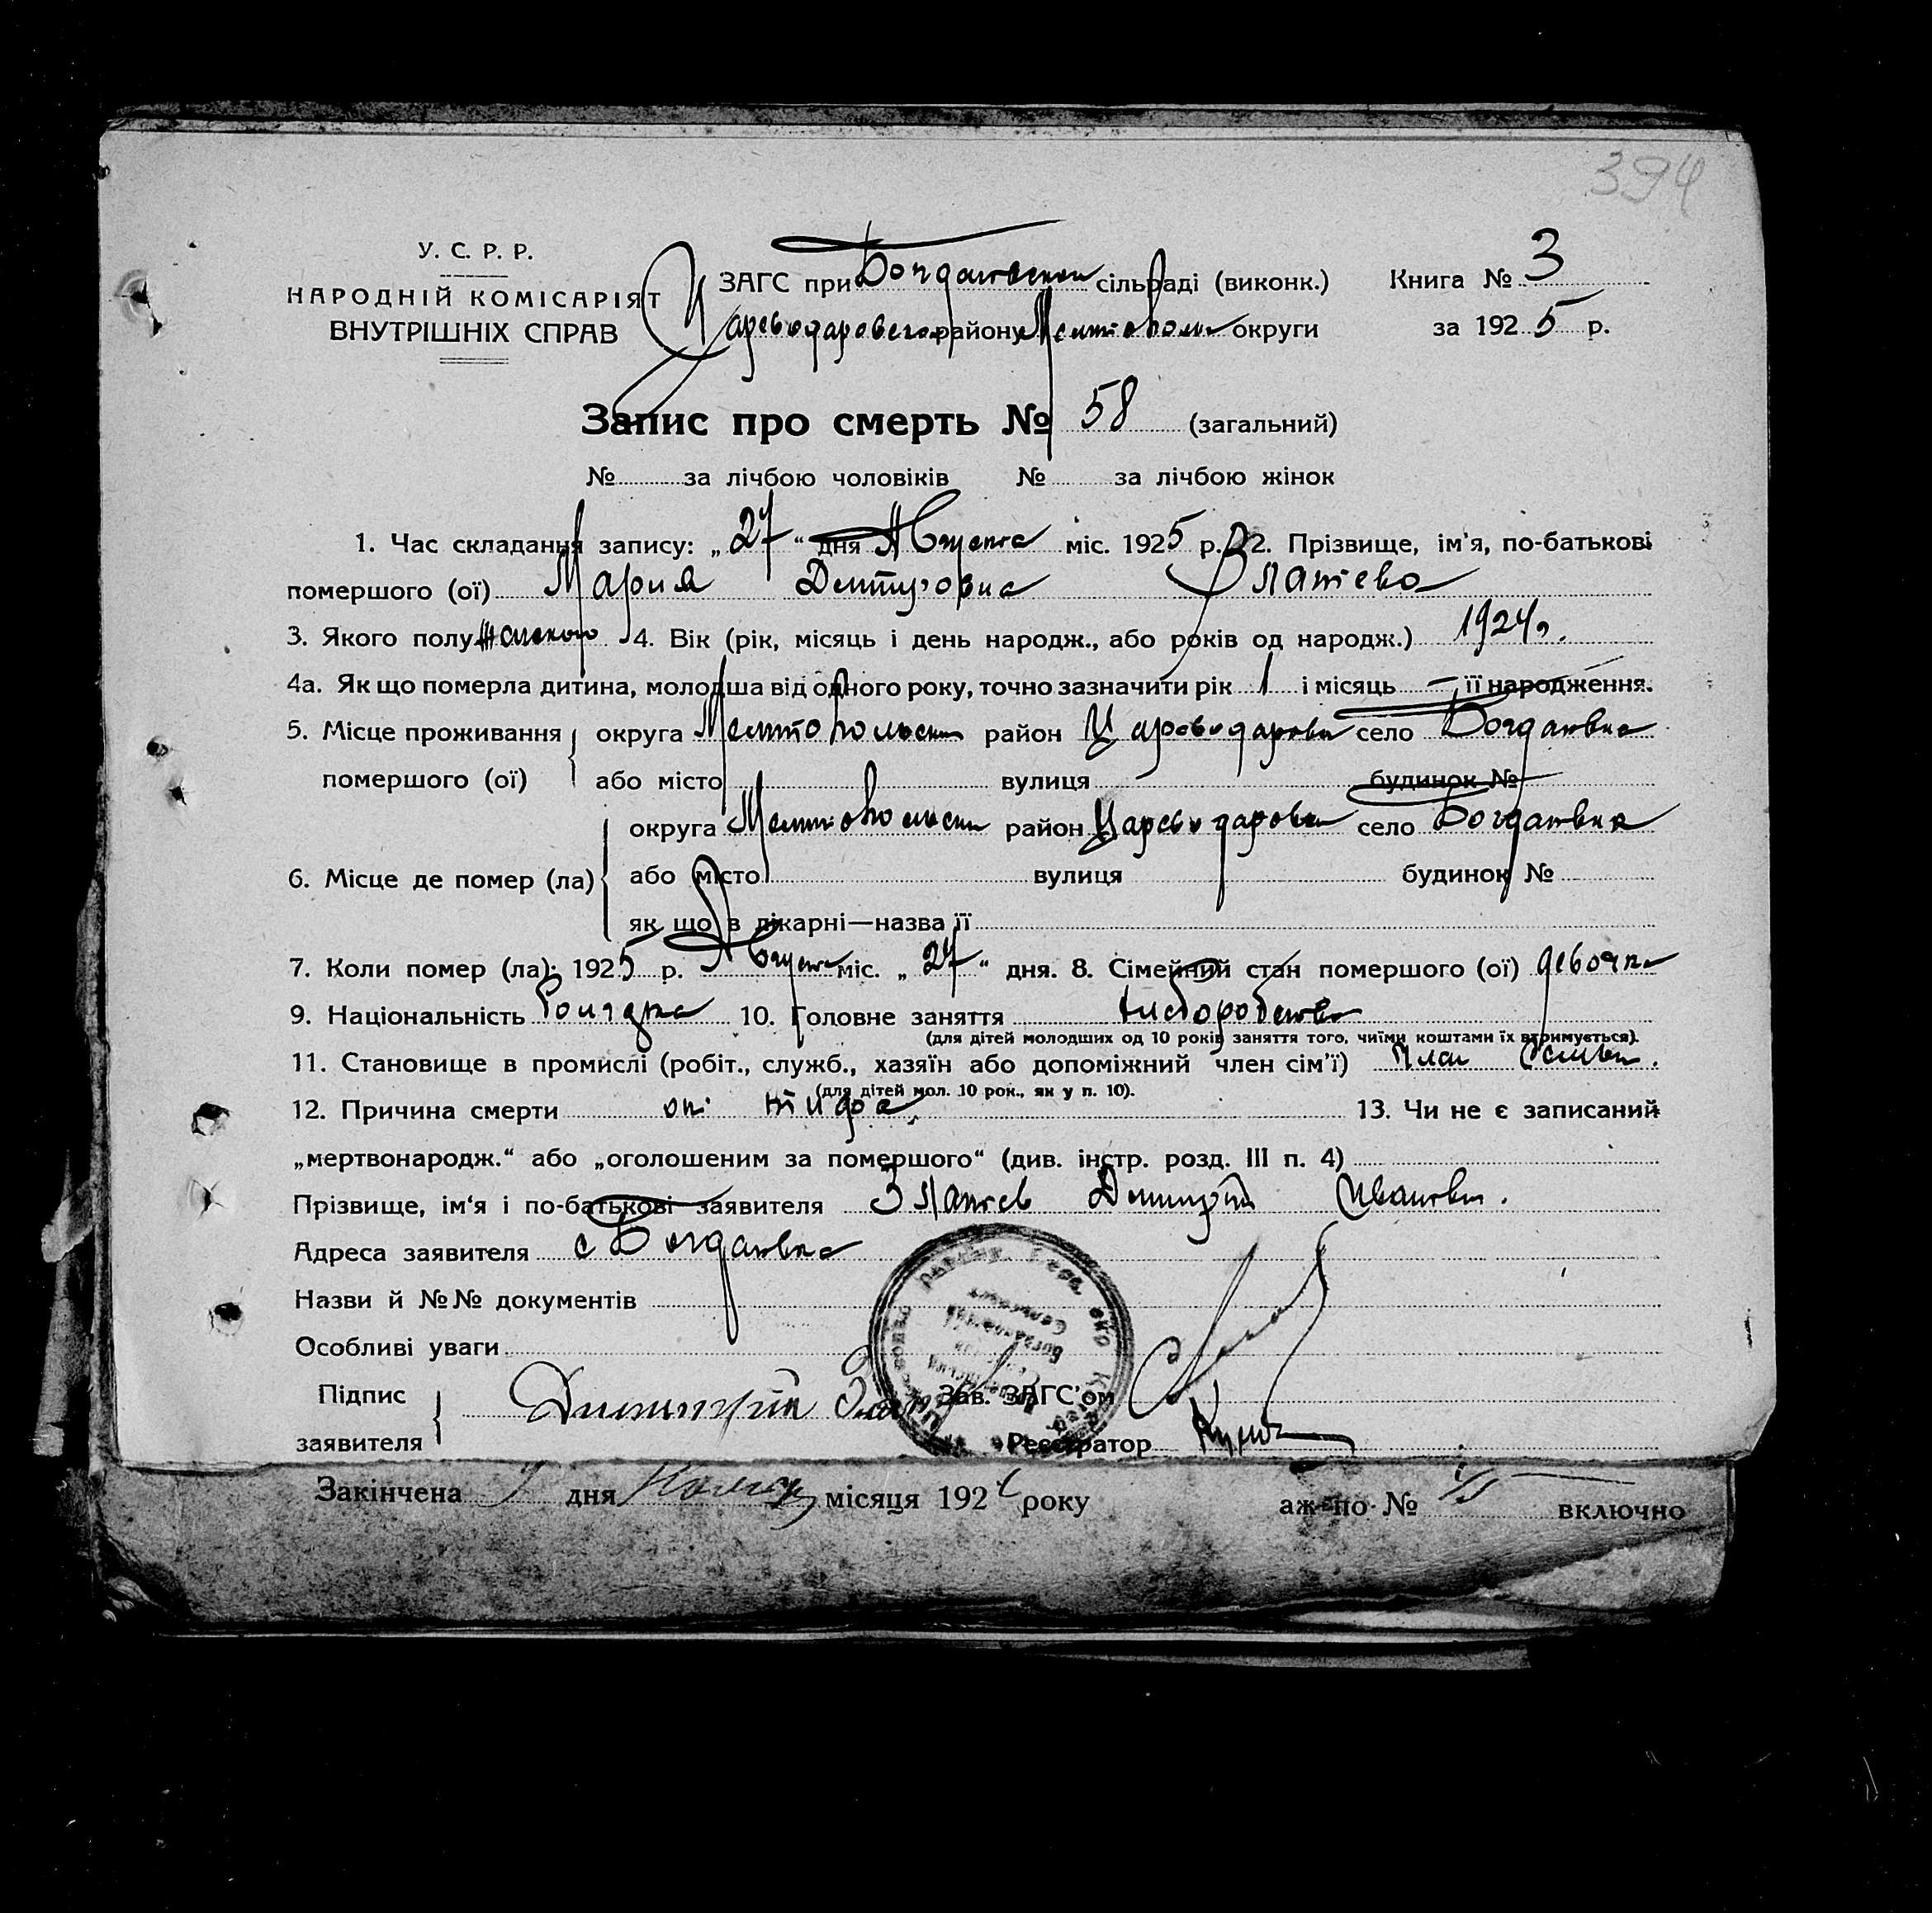 394
У. С. Р. Р.
НАРОДНІЙ КОМІСАРІЯТ
ВНУТРІШНІХ СПРАВ
ЗАГС при Богдановском сільраді (виконк.)
Цареводаровского району Мелитополь округи
Книга № 3
за 1925 р.
Запис про смерть № 58 (загальний)
№ за лічбою чоловіків № за лічбою жінок
1. Час складання запису: „27“ дня Августа міс. 1925 р. 2. Прізвище, ім'я, по-батькові
помершого (ої) Мария Дмитровна Златева
3. Якого полу женского 4. Вік (рік, місяць і день народж., або років од народж.) 1924г.
4а. Як що померла дитина, молодша від одного року, точно зазначити рік 1 і місяць — її народження.
5. Місце проживання округа Мелитопольски район Цареводаровки село Богдановка
помершого (ої) або місто вулиця будинок №
6. Місце де помер (ла) округа Мелитопольски район Цареводаровки село Богдановка
або місто вулиця будинок №
як що в лікарні—назва її
7. Коли помер (ла): 1925 р. Августа міс. „27“ дня. 8. Сімейний стан помершого (ої) девочка
9. Національність Болгарка 10. Головне заняття хлеборобство
(для дітей молодших од 10 років заняття того, чиїми коштами їх втримується).
11. Становище в промислі (робіт., служб., хазяїн або допоміжний член сім'ї) член семьи.
(для дітей мол. 10 рок., як у п. 10).
12. Причина смерти от 13. Чи не є записаний
„мертвонародж.“ або „оголошеним за помершого“ (див. інстр. розд. III п. 4)
Прізвище, ім'я і по-батькові заявителя Златев Дмитрій Иванович.
Адреса заявителя с Богдановка
Назви й №№ документів
Особливі уваги
Підпис заявителя Димитрий
Зав. ЗАГС'ом
Реєстратор
Закінчена дня місяця 192 року аж по № включно